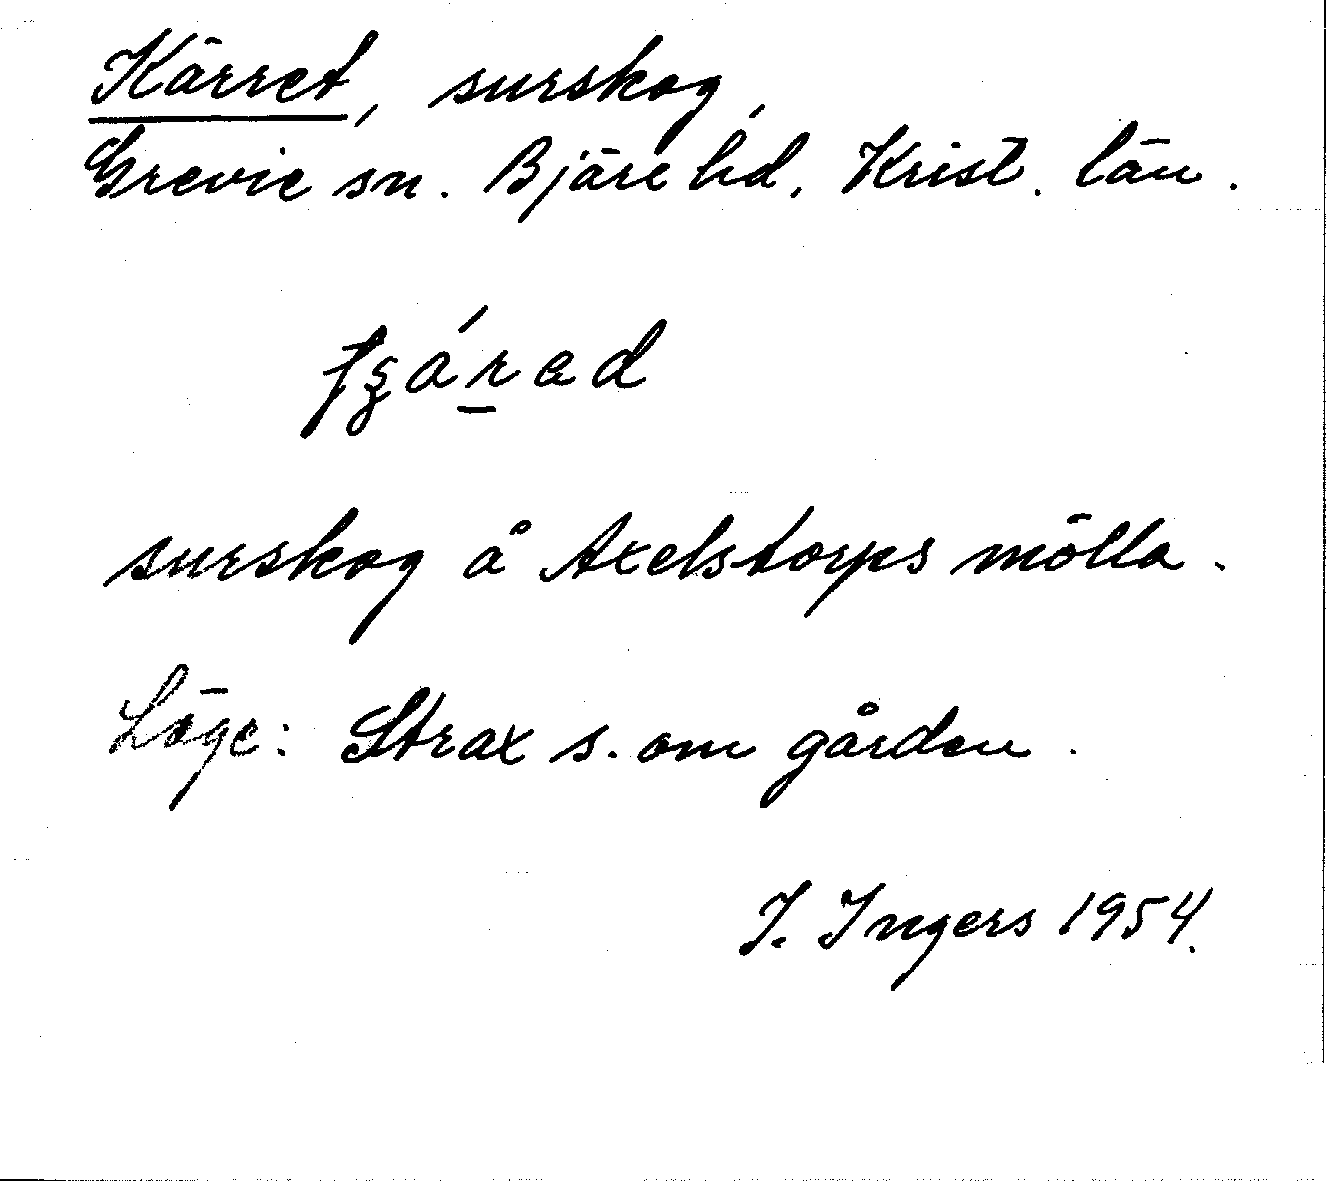 Kärret, surskog,
Grevie sn. Bjäre hd. Krist. län.
surskog å Axelstorps mölla.
Läge: Strax s. om gården.
I. Ingers 1954.